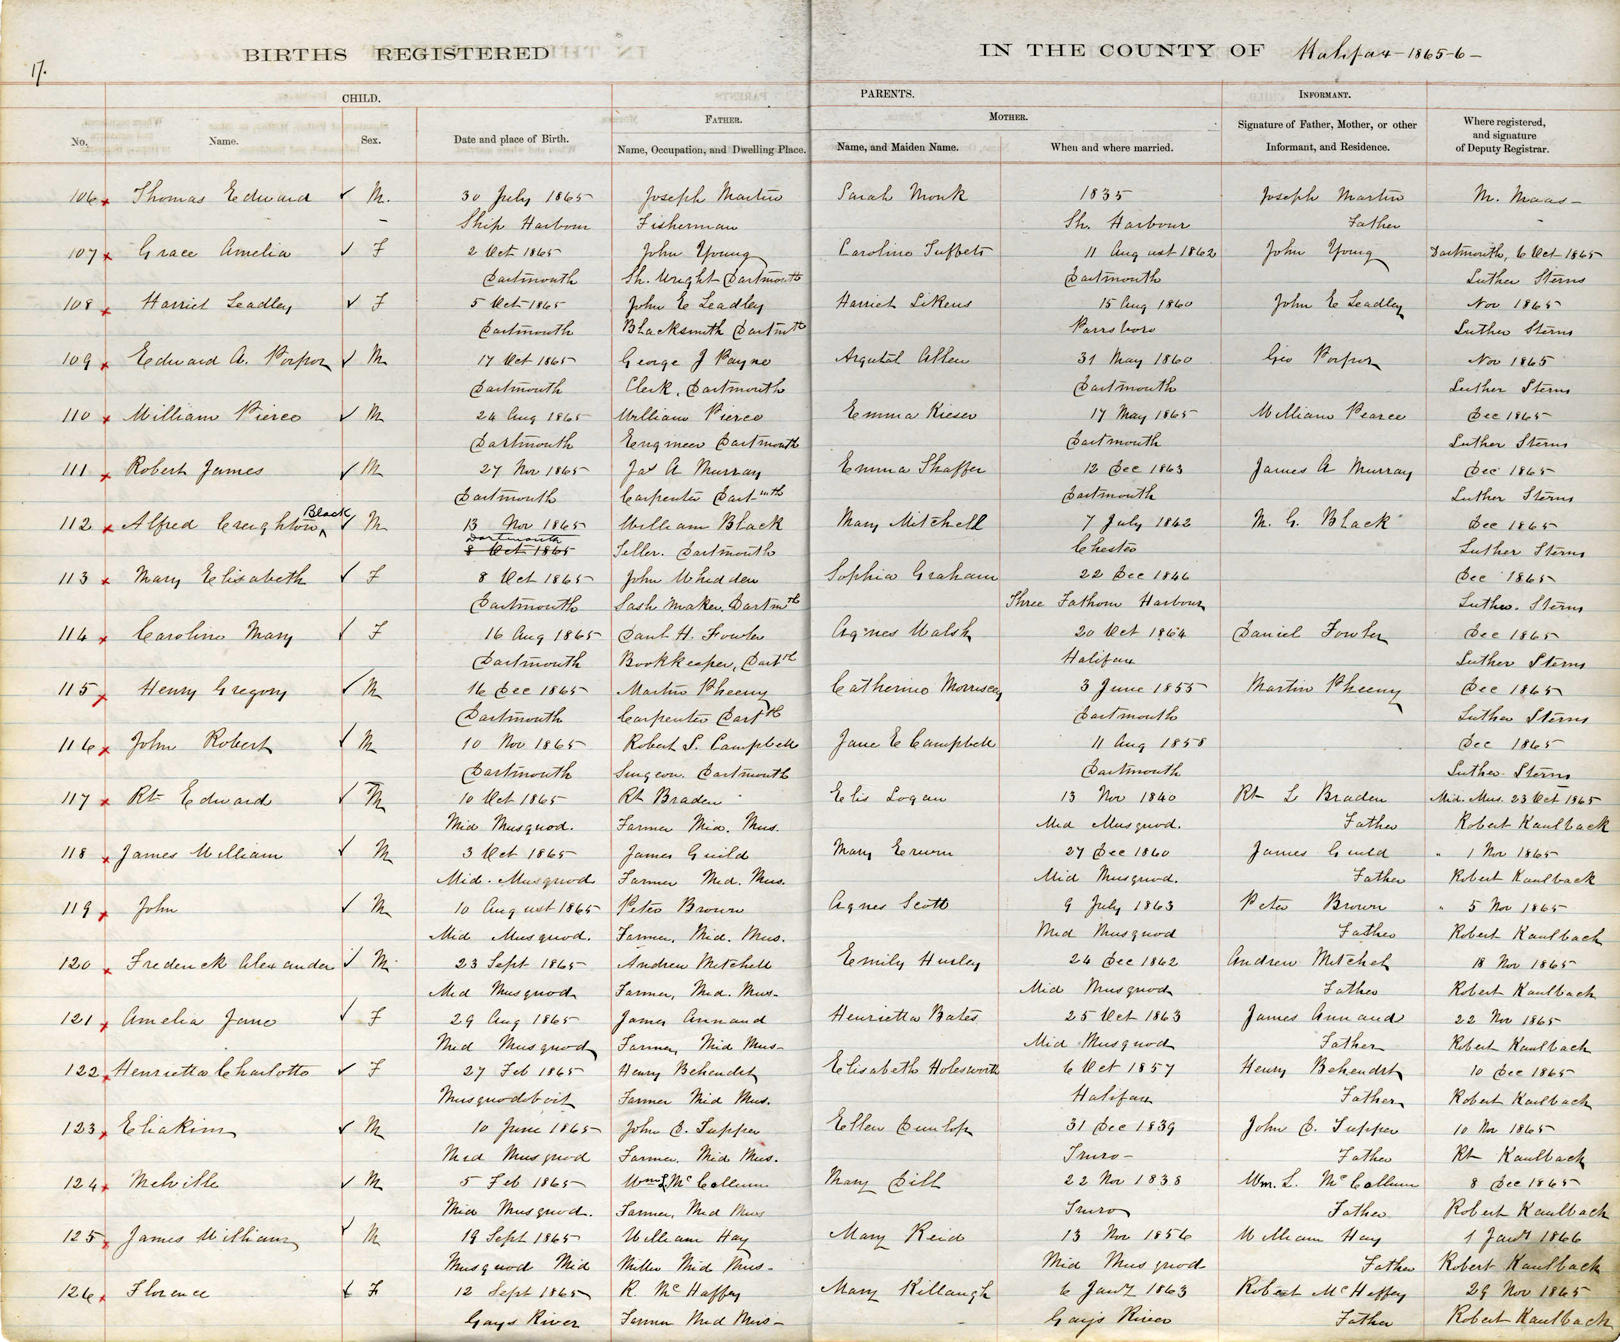 17.
BIRTHS REGISTERED IN THE COUNTY OF Halifax - 1865-6 -
CHILD. PARENTS. INFORMANT.
FATHER. MOTHER.
No. Name. Sex. Date and place of Birth. Name, Occupation, and Dwelling Place. Name, and Maiden Name. When and where married. Signature of Father, Mother, or other Informant, and Residence. Where registered, and signature of Deputy Registrar.
106 Thomas Edward M. 30 July 1865 Joseph Martin Sarah Monk 1835 Joseph Martin M. Maas
Ship Harbour Fisherman Sh. Harbour Father
107 Grace Amelia F 2 Oct 1865 John Young Caroline Tuffets 11 August 1862 John Young Dartmouth, 6 Oct 1865
Dartmouth Sh. Wright Dartmouth Dartmouth Luther Sterns
108 Harriet Leadley F 5 Oct 1865 John E Leadley Harriet Likens 15 Aug 1860 John E Leadley Nov 1865
Dartmouth Blacksmith Dartmth Parrsboro Luther Sterns
109 Edward A. M 17 Oct 1865 George J Payne Allen 31 May 1860 Geo Nov 1865
Dartmouth Clerk, Dartmouth Dartmouth Luther Sterns
110 William Pierce M 24 Aug 1865 William Pierce Emma Kieser 17 May 1865 William Pearce Dec 1865
Dartmouth Engineer Dartmouth Dartmouth Luther Sterns
111 Robert James M 27 Nov 1865 Jas A Murray Emma Shaffer 12 Dec 1863 James A Murray Dec 1865
Dartmouth Carpenter Dartmth Dartmouth Luther Sterns
112 Alfred Creighton Black M 13 Nov 1865 William Black Mary Mitchell 7 July 1862 M. G. Black Dec 1865
Dartmouth 8 Oct 1865 Teller. Dartmouth Chester Luther Sterns
113 Mary Elisabeth F 8 Oct 1865 John Whidden Sophia Graham 22 Dec 1846 Dec 1865
Dartmouth Sash Maker, Dartmth Three Fathom Harbour Luther. Sterns
114 Caroline Mary F 16 Aug 1865 Danl H. Fowler Agnes Walsh 20 Oct 1864 Daniel Fowler Dec 1865
Dartmouth Bookkeeper, Dartth Halifax Luther Sterns
115 Henry Gregory M 16 Dec 1865 Martin Pheeny Catherine Morrissey 3 June 1855 Martin Pheeny Dec 1865
Dartmouth Carpenter Dartth Dartmouth Luther Sterns
116 John Robert M 10 Nov 1865 Robert S. Campbell Jane E Campbell 11 Aug 1858 Dec 1865
Dartmouth Surgeon. Dartmouth Dartmouth Luther Sterns
117 Rt Edward M 10 Oct 1865 Rt Braden Elis Logan 13 Nov 1840 Rt L Braden Mid. Mus. 23 Oct 1865
Mid Musquod. Farmer Mid. Mus. Mid Musquod. Father Robert Kaulback
118 James William M 3 Oct 1865 James Guild Mary Erwin 27 Dec 1860 James Guild " 1 Nov 1865
Mid. Musquod Farmer Mid. Mus. Mid Musquod. Father Robert Kaulback
119 John M 10 August 1865 Peter Brown Agnes Scott 9 July 1863 Peter Brown " 5 Nov 1865
Mid Musquod. Farmer, Mid. Mus. Mid Musquod Father Robert Kaulback
120 Frederick Alexander M 23 Sept 1865 Andrew Mitchell Emily Hurley 24 Dec 1862 Andrew Mitchel 18 Nov 1865
Mid Musquod Farmer, Mid. Mus- Mid Musquod Father Robert Kaulback
121 Amelia Jane F 29 Aug 1865 James Annand Henrietta Bates 25 Oct 1863 James Annand 22 Nov 1865
Mid Musquod Farmer, Mid Mus- Mid Musquod Father Robert Kaulback
122 Henrietta Charlotte F 27 Feb 1865 Henry Behendst Elisabeth Holesworth 6 Oct 1857 Henry Behendst 10 Dec 1865
Musquodoboit Farmer Mid Mus. Halifax Father Robert Kaulback
123 Eliakim M 10 June 1865 John D. Tupper Ellen Dunlop 31 Dec 1839 John D. Tupper 10 Nov 1865
Mid Musquod Farmer. Mid Mus. Truro- Father Rt Kaulback
124 Melville M 5 Feb 1865 Wm L McCollum Mary Dill 22 Nov 1838 Wm. L. McCollum 8 Dec 1865
Mid Musquod. Farmer, Mid Mus Truro Father Robert Kaulback
125 James William M 19 Sept 1865 William Hay Mary Reid 13 Nov 1856 William Hay 1 Jany 1866
Musquod Mid Miller Mid Mus- Mid Musquod Father Robert Kaulback
126 Florence F 12 Sept 1865 R. McHaffey Mary Killaugh 6 Jany 1863 Robert McHeffey 29 Nov 1865
Gays River Farmer Mid Mus- Gays River Father Robert Kaulback